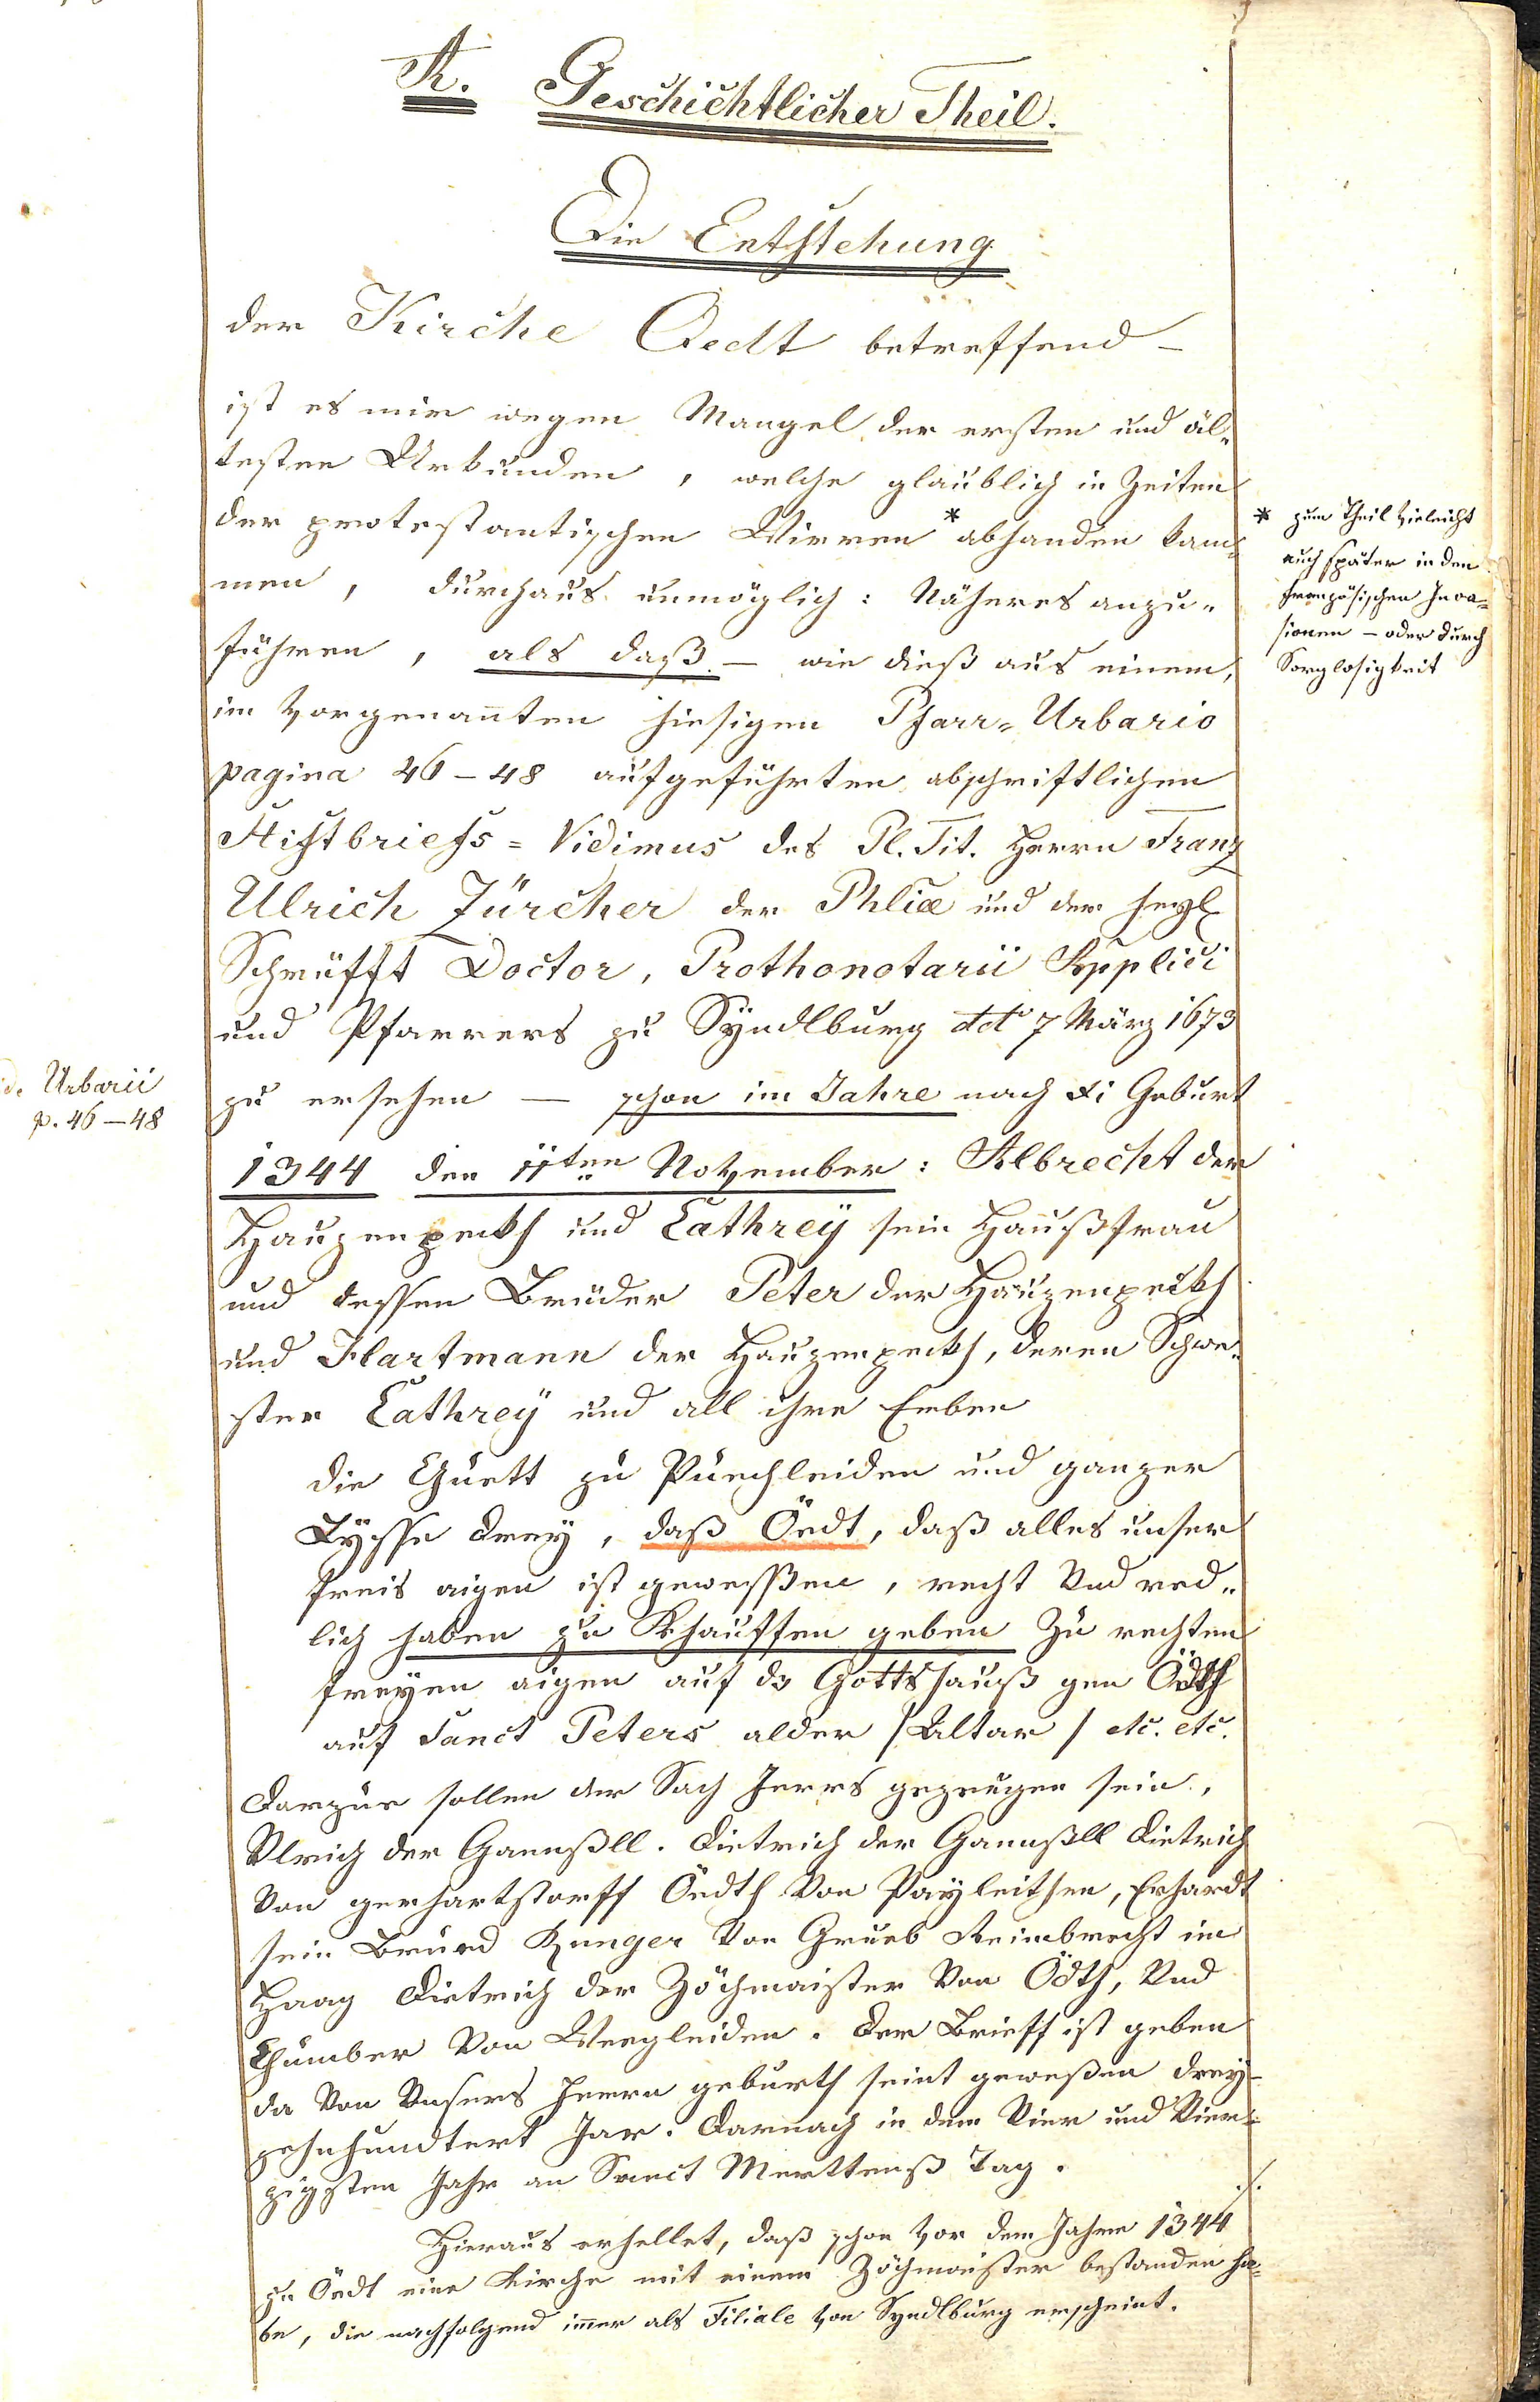 A. Geschichtlicher Theil.
Die Entstehung
der Kirche Oedt betreffend –
ist es mir wegen Mangel der ersten und äl-
testen Urkunden, welche glaublich in Zeiten
der protestantischen Wirren * abhanden kam-
men, durchaus unmöglich: Näheres anzu-
führen, als daß – wie dieß aus einem,
im vorgenañten hiesigen Pfarr-Urbario
pagina 46–48 aufgeführten abschriftlichen
Stiftbriefs-Vidimus des Pl. Tit. Herrn Franz
Ulrich Zürcher der Phliæ und der heyl
Schrüfft Doctor, Prothonotarii Applici
und Pfarrers zu Syndlburg dd 7 März 1673
zu ersehen – schon im Jahre nach Xi Geburt
1344 den 11ten November: Albrecht der
Hauzenpeckh und Cathrey sein Haußfrau
und dessen Brüder Peter der Hauzenpeckh
und Hartmann der Hauzenpeckh, deren Schwe-
ster Cathrey und all ihre Erben
die Guett zu Puechleiden und ganzer
drey, daß Öedt, daß alles unser
freis aigen ist gewessßen, recht Und red-
lich haben zu Khauffen geben Zu rechten
freyen aigen auf ds Gottshauß gen Ödth
auf Sanct Peters alder /Altar/ etc. etc.
Darzue sollen der Sach gezeugen sein,
Ulrich der Gaenßll. Dietrich der Gaenßll Dietrich
Von gerhartstorff Öedth Von Payleithen, Erhardt
sein Brued Kunger Von Grueb Reimbrecht im
Haag Dietrich der Zöchmaister Von Ödth, Und
Chumber Von Weegleiden. Der Brieff ist geben
da Von Unsers Herrn geburth seint geweßen drey-
zehnhundtert Jar. Darnach in dem Vier und Vier-
zigsten Jahr an Sanct Merttenß Tag.
./.
Hieraus erhellet, daß schon vor dem Jahre 1344
zu Öedt eine Kirche mit einem Zöchmaister bestanden ha-
be, die nachfolgend im̄er als Filiale von Syndlburg erscheint.
* zum Theil vieleicht
auch später in den
französischen Inva-
sionen – oder durch
Sorglosigkeit
Urbarii
p. 46–48